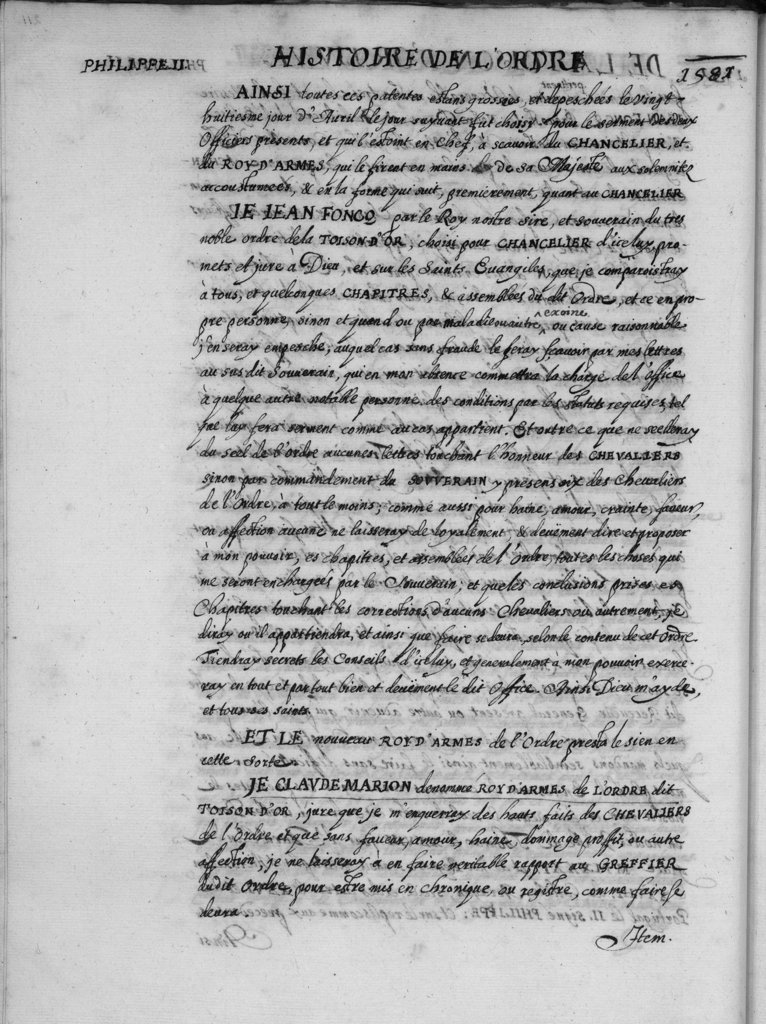 PHILIPPE II
HISTOIRE DE L'ORDRE
1581
AINSI toutes ces patentes estans grossees, et depeschées le vingt-
huitiesme jour d'Avril le jour suyvant fut choisy pour le serment des deux
Officiers presents, et qui l'estoint en chef, à scavoir du CHANCELIER, et
du ROY D'ARMES, qui le firent en mains de sa Majesté aux solemnitez
accoustumees, & en la forme qui suit, premierement, quant au CHANCELIER
JE JEAN FONCQ par le Roy nostre sire, et souverain du tres
noble ordre de la TOISON D'OR, choisi pour CHANCELIER d'icelux, pro-
mets et jure à Dieu, et sur les Saints Evangiles, que je comparoistray
à tous, et quelconques CHAPITRES, & assemblées du dit Ordre, et ce en pro-
pre personne, sinon et quand ou par maladie ou autre exoine, ou cause raisonnable
j'en seray empesché, auquel cas sans fraude le feray scavoir par mes lettres
au sus dit Souverain, qui en mon absence commettra la charge de l'office
à quelque autre notable personne des conditions par les statuts requises, tel
que luy fera serment comme au cas appartient. Et outre ce que ne seelleray
du seel de l'ordre aucunes lettres touchant l'honneur des CHEVALIERS
sinon par commandement du SOUVERAIN y presens six des Chevaliers
de l'Ordre, à tout le moins; comme aussi pour haine, amour, crainte, faveur,
ou affection aucune ne laisseray de loyalement, & deuëment dire et proposer
à mon pouvoir, es chapitres, et assemblées de l'Ordre, toutes les choses qui
me seront enchargées par le Souverain; et que les conclusions prises es
Chapitres touchant les corrections d'aucuns Chevaliers ou autrement, je
diray ou il appartiendra, et ainsi que faire se devra, selon le contenu de cet Ordre
Tiendray secrets les Conseils d'icelux, et generalement à mon pouvoir exerce-
ray en tout et par tout bien et deuëment le dit Office. Ainsi Dieu m'ayde,
et tous ses saints.
ET LE nouveau ROY D'ARMES de l'Ordre presta le sien en
cette sorte.
JE CLAVDE MARION denommé ROY D'ARMES de L'ORDRE dit
TOISON D'OR, jure que je m'enquerray des hauts faits des CHEVALIERS
de l'Ordre et que sans faveur, amour, haine, dommage proffit, ou autre
affection, je ne laisseray à en faire veritable rapport au GREFFIER
dudit Ordre, pour estre mis en chronique, ou registre, comme faire se
devra.
Item.